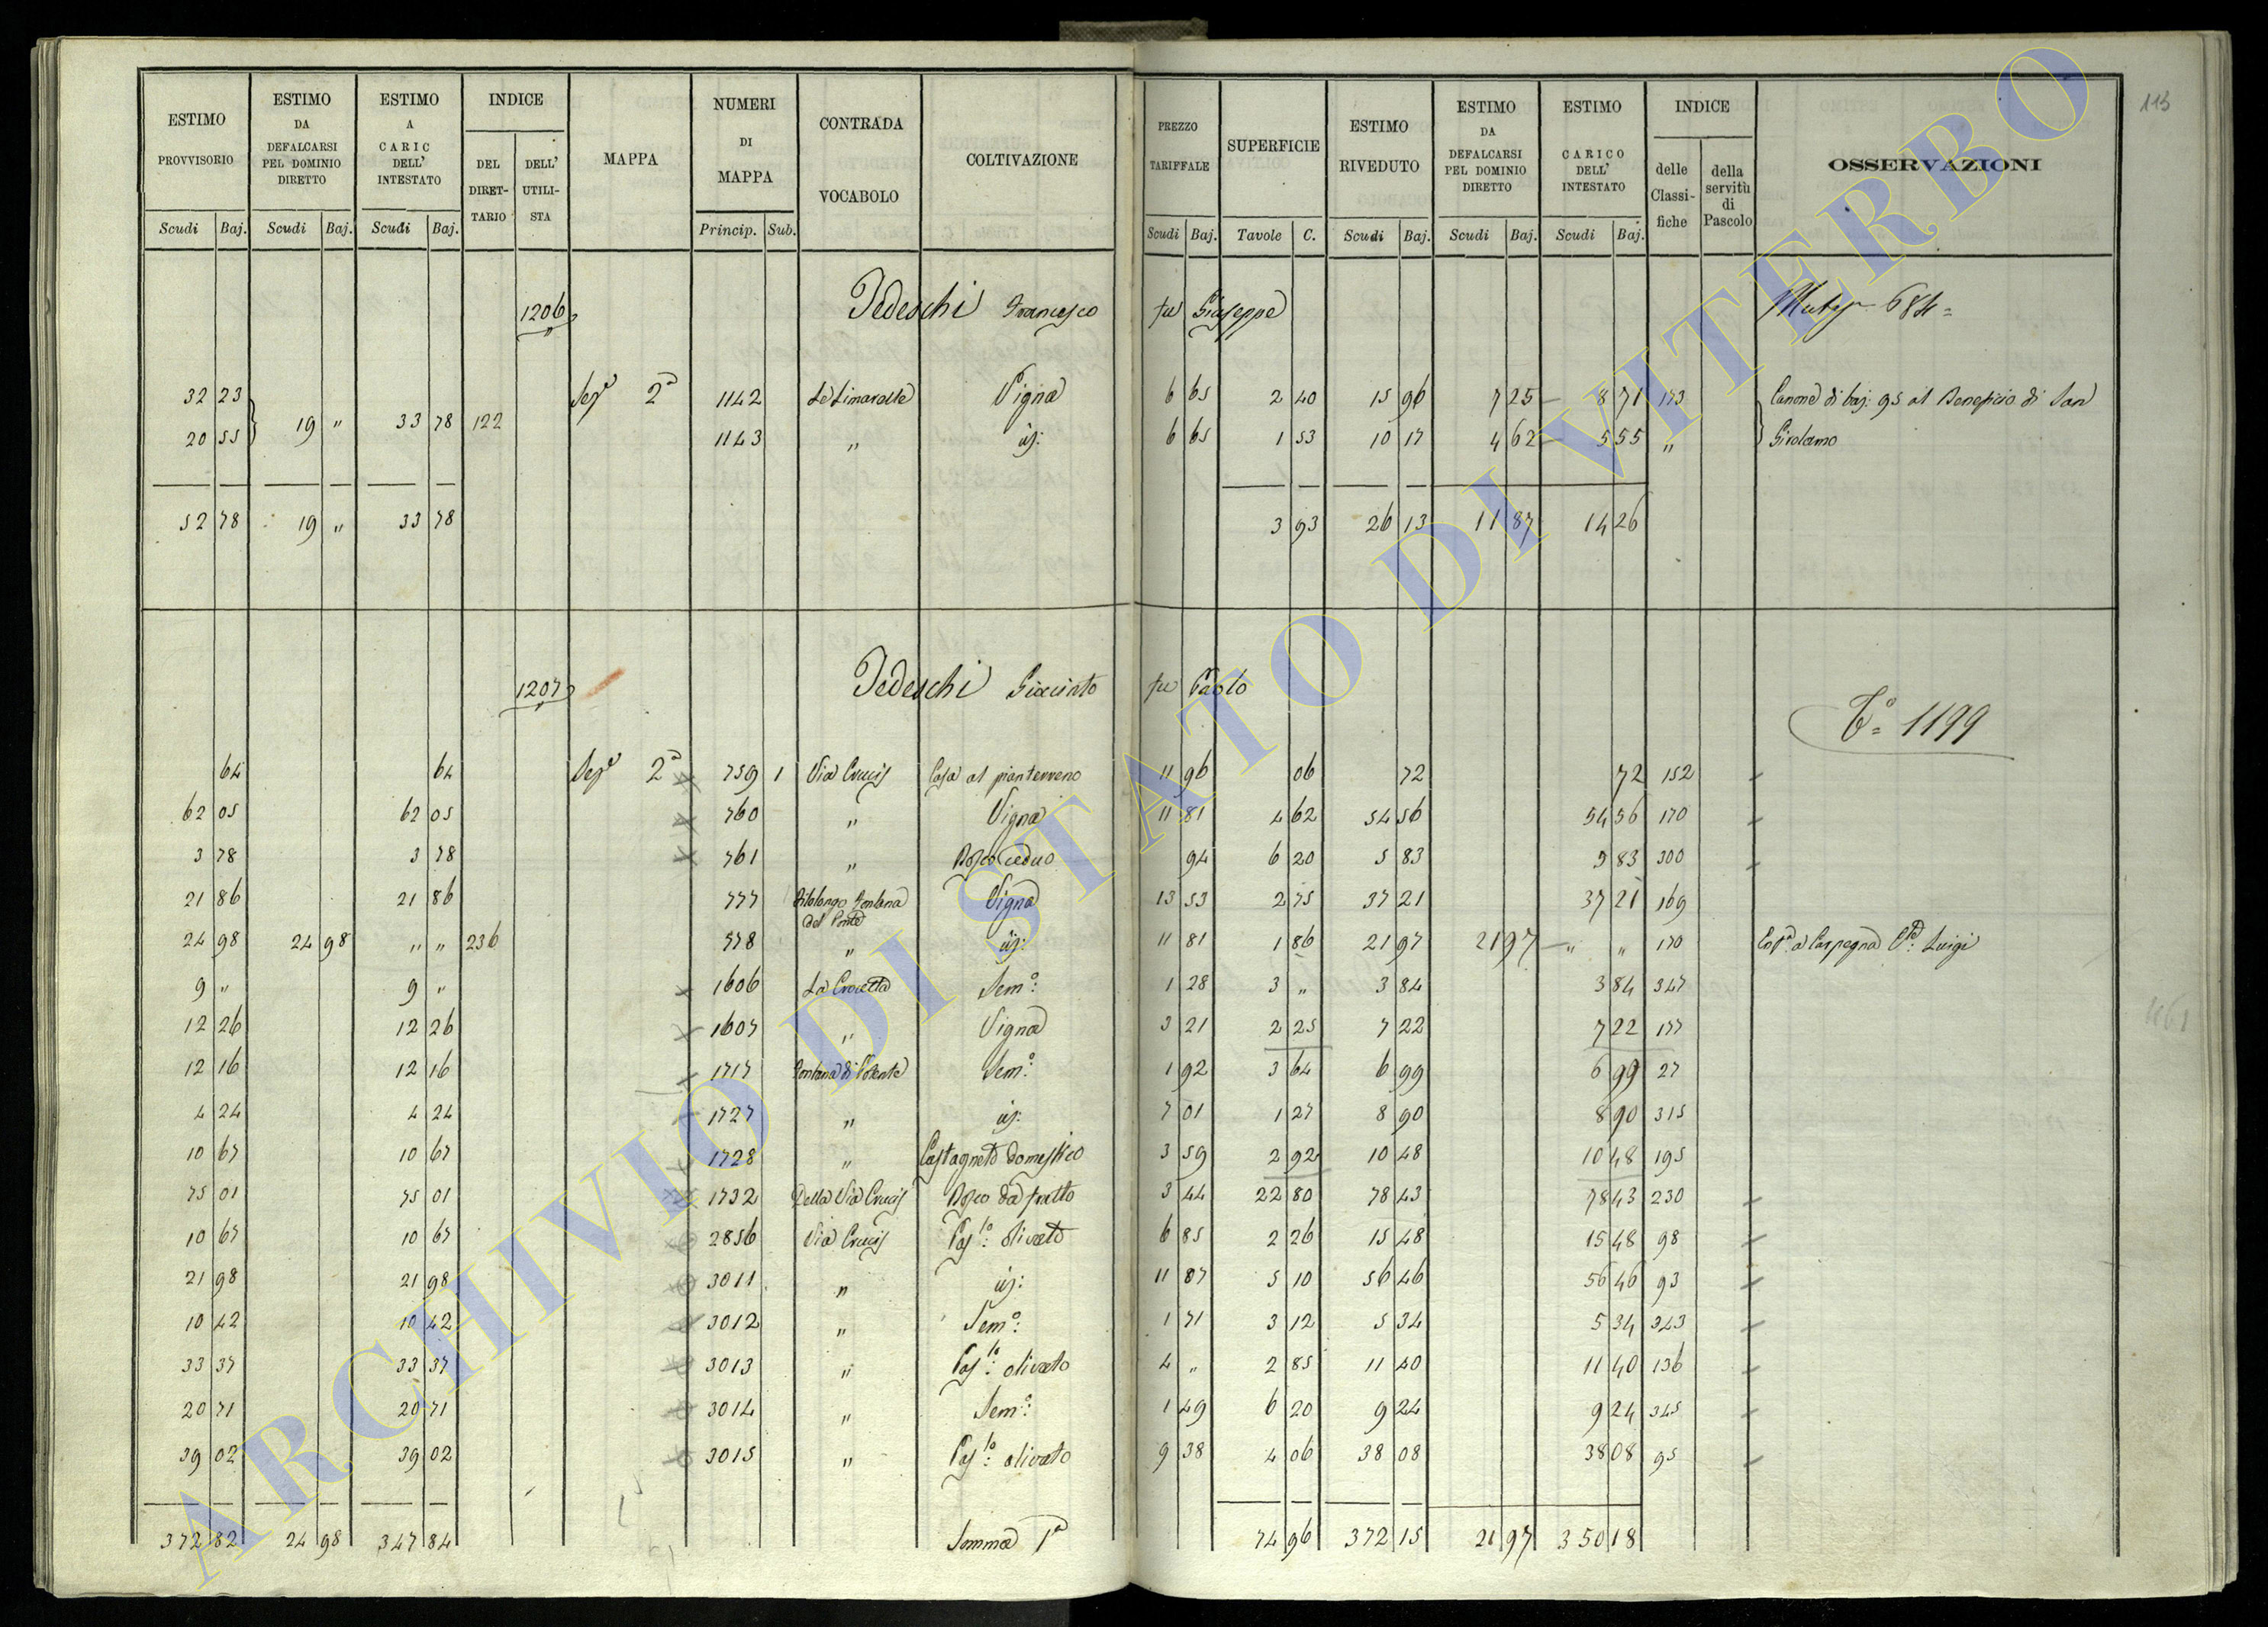 ESTIMO PROVVISORIO | ESTIMO DA DEFALCARSI PEL DOMINIO DIRETTO | ESTIMO A CARIC DELL' INTESTATO | INDICE DEL DIRET-TARIO | DELL' UTILI-STA | MAPPA | NUMERI DI MAPPA | CONTRADA VOCABOLO | COLTIVAZIONE | PREZZO TARIFFALE | SUPERFICIE | ESTIMO RIVEDUTO | ESTIMO DA DEFALCARSI PEL DOMINIO DIRETTO | ESTIMO CARICO DELL' INTESTATO | INDICE delle Classi-fiche | della servitù di Pascolo | OSSERVAZIONI
Scudi Baj. Scudi Baj. Scudi Baj. Princip. Sub. Scudi Baj. Tavole C. Scudi Baj. Scudi Baj. Scudi Baj.
113
1206 Tedeschi Francesco fu Giuseppe 684
32 23 Sez. 2a 1142 Le Vigna 6 65 2 40 15 96 7 25 8 71 173 Canone di baj: 95 al Beneficio di San
19 " 33 78 122
20 55 1143 " id: 6 65 1 53 10 17 4 62 5 55 " Girolamo
52 78 19 " 33 78 3 93 26 13 11 87 14 26
1207 Tedeschi Giacinto fu Paolo
1199
64 64 Sez. 2a 759 1 Via Crucis Casa al pianterreno 11 96 06 72 72 152
62 05 62 05 760 " Vigna 11 81 4 62 54 56 54 56 170
3 78 3 78 761 " Bosco ceduo 94 6 20 5 83 5 83 300
21 86 21 86 777 Fontana del Ponte Vigna 13 53 2 75 37 21 37 21 169
24 98 24 98 " " 236 778 " id: 11 81 1 86 21 97 21 97 " " 170 a Carpegna Luigi
9 " 9 " 1606 La Crocetta Sem.o 1 28 3 " 3 84 3 84 347
12 26 12 26 1607 " Vigna 3 21 2 25 7 22 7 22 177
12 16 12 16 1717 Fontana di Sem.o 1 92 3 64 6 99 6 99 27
4 24 4 24 1727 " id: 7 01 1 27 8 90 8 90 315
10 67 10 67 1728 " Castagneto domestico 3 59 2 92 10 48 10 48 195
75 01 75 01 1732 Della Via Crucis Bosco da frutto 3 44 22 80 78 43 78 43 230
10 67 10 67 2856 Via Crucis Pas.lo olivato 6 85 2 26 15 48 15 48 98
21 98 21 98 3011 " id: 11 87 5 10 56 46 56 46 93
10 42 10 42 3012 " Sem.o 1 71 3 12 5 34 5 34 343
33 37 33 37 3013 " Pas.lo olivato 4 " 2 85 11 40 11 40 136
20 71 20 71 3014 " Sem.o 1 49 6 20 9 24 9 24 345
39 02 39 02 3015 " Pas.lo olivato 9 38 4 06 38 08 38 08 95
372 82 24 98 347 84 Somma 74 96 372 15 21 97 350 18
ARCHIVIO DI STATO DI VITERBO